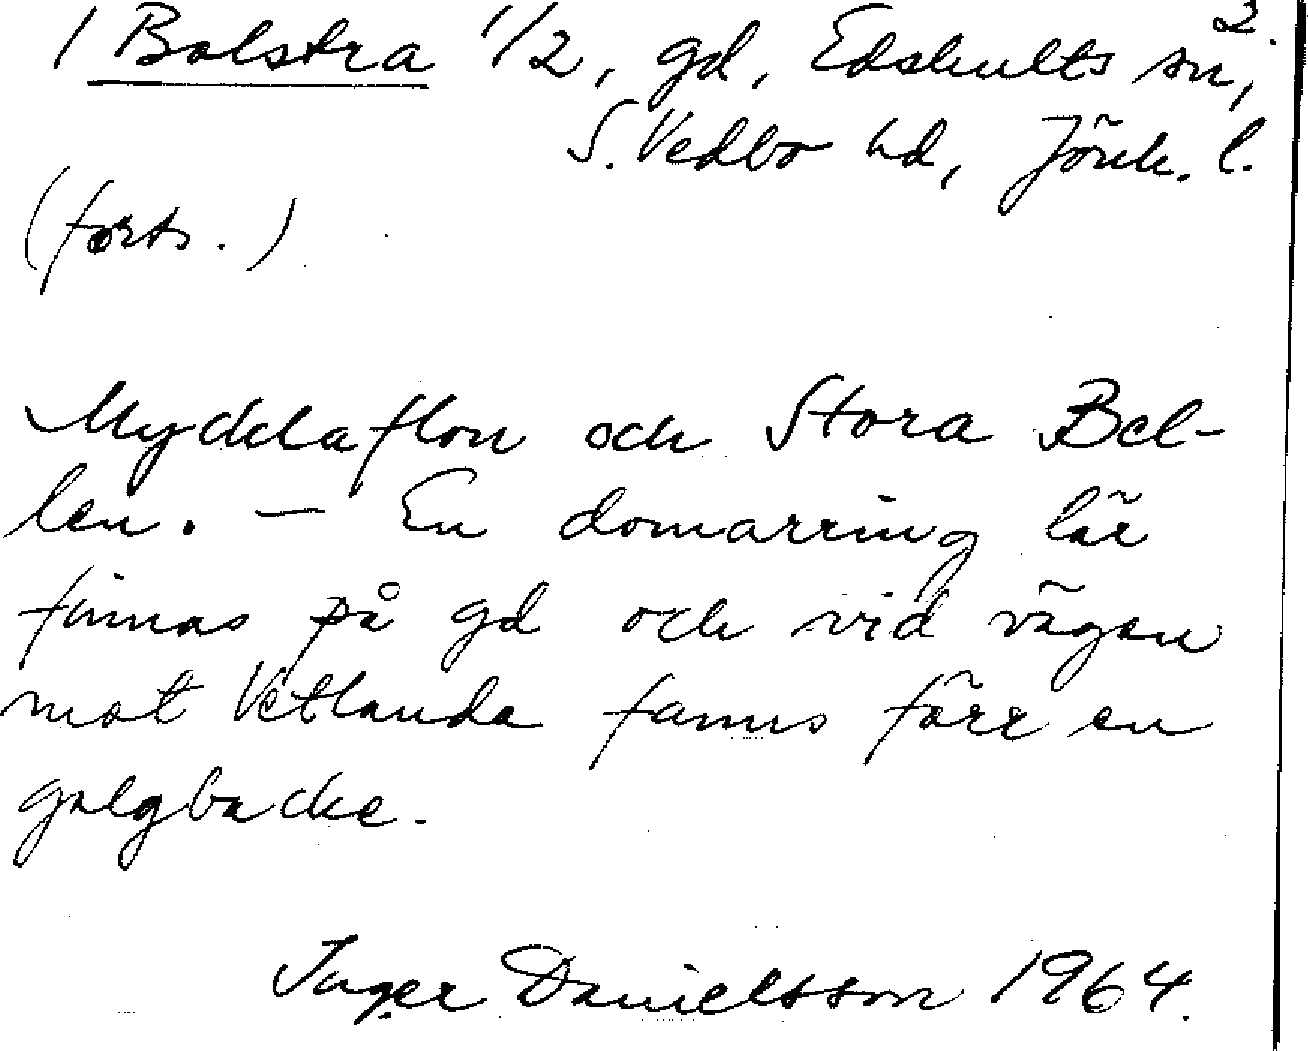 2.
1 Bolstra 1/2, gd, Edshults sn,
S. Vedbo hd, Jönk. l.
(forts.)
Myckelaflon och Stora Bel-
len. – En domarring lär
finnas på gd och vid vägen
mot Vetlanda fanns förr en
galgbacke.
Inger Danielsson 1964.